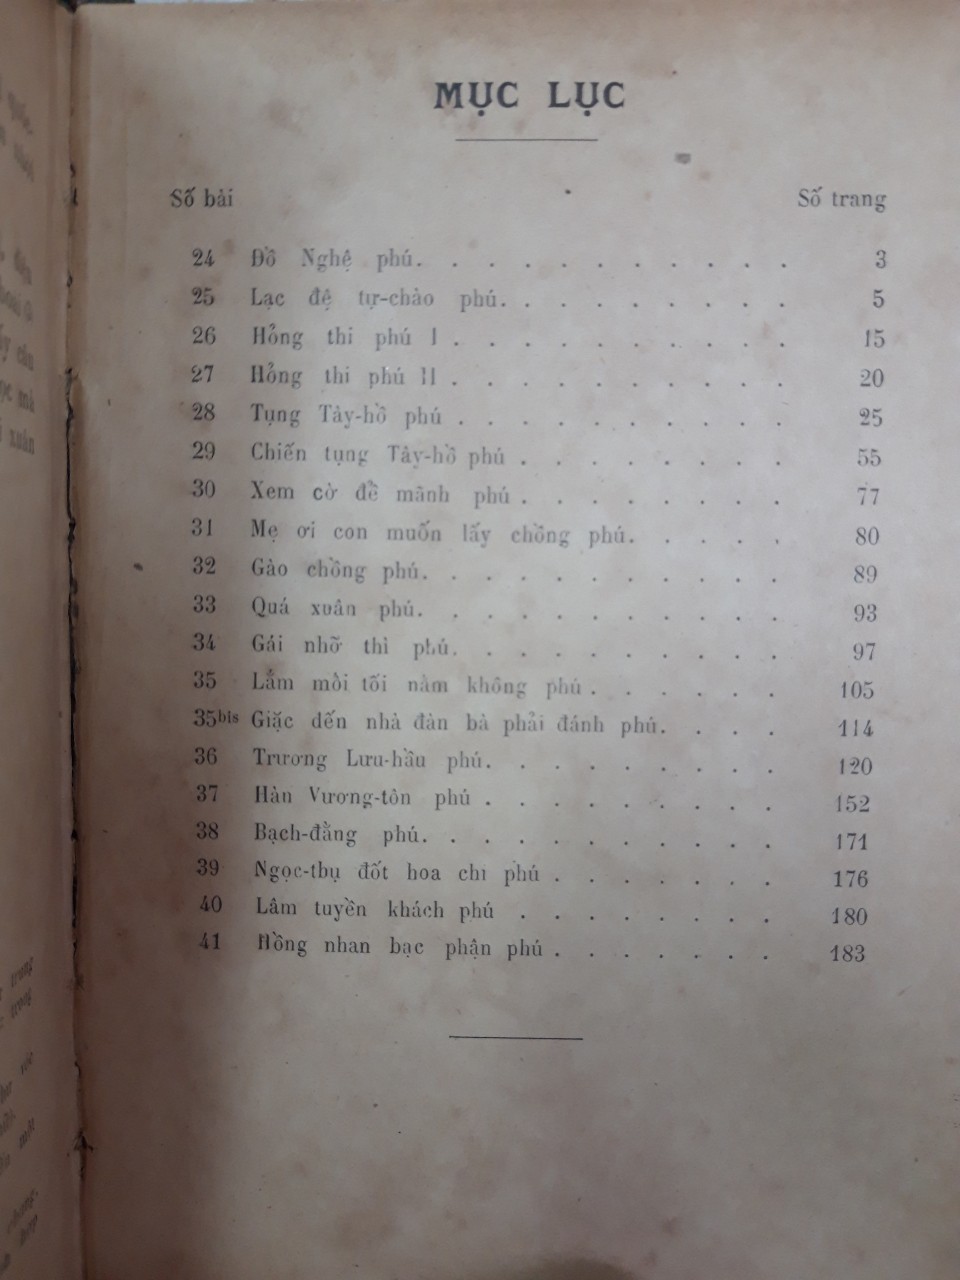 MỤC LỤC
Số bài Số trang
24 Đồ Nghệ phú. . . . . . . . . . . 3
25 Lạc đệ tự-chào phú. . . . . . . . . 5
26 Hỏng thi phú I . . . . . . . . . . 15
27 Hỏng thi phú II . . . . . . . . . . 20
28 Tụng Tây-hồ phú . . . . . . . . . . 25
29 Chiến tụng Tây-hồ phú . . . . . . . . 55
30 Xem cờ đề mãnh phú . . . . . . . . 77
31 Mẹ ơi con muốn lấy chồng phú. . . . . 80
32 Gào chồng phú. . . . . . . . . . . 89
33 Quá xuân phú. . . . . . . . . . . 93
34 Gái nhỡ thì phú. . . . . . . . . . 97
35 Lắm mối tối nằm không phú . . . . . . 105
35bis Giặc đến nhà đàn bà phải đánh phú. . . . 114
36 Trương Lưu-hầu phú. . . . . . . . . 120
37 Hàn Vương-tôn phú . . . . . . . . . 152
38 Bạch-đằng phú. . . . . . . . . . . 171
39 Ngọc-thụ đốt hoa chi phú . . . . . . . 176
40 Lâm tuyền khách phú . . . . . . . . 180
41 Hồng nhan bạc phận phú . . . . . . . 183